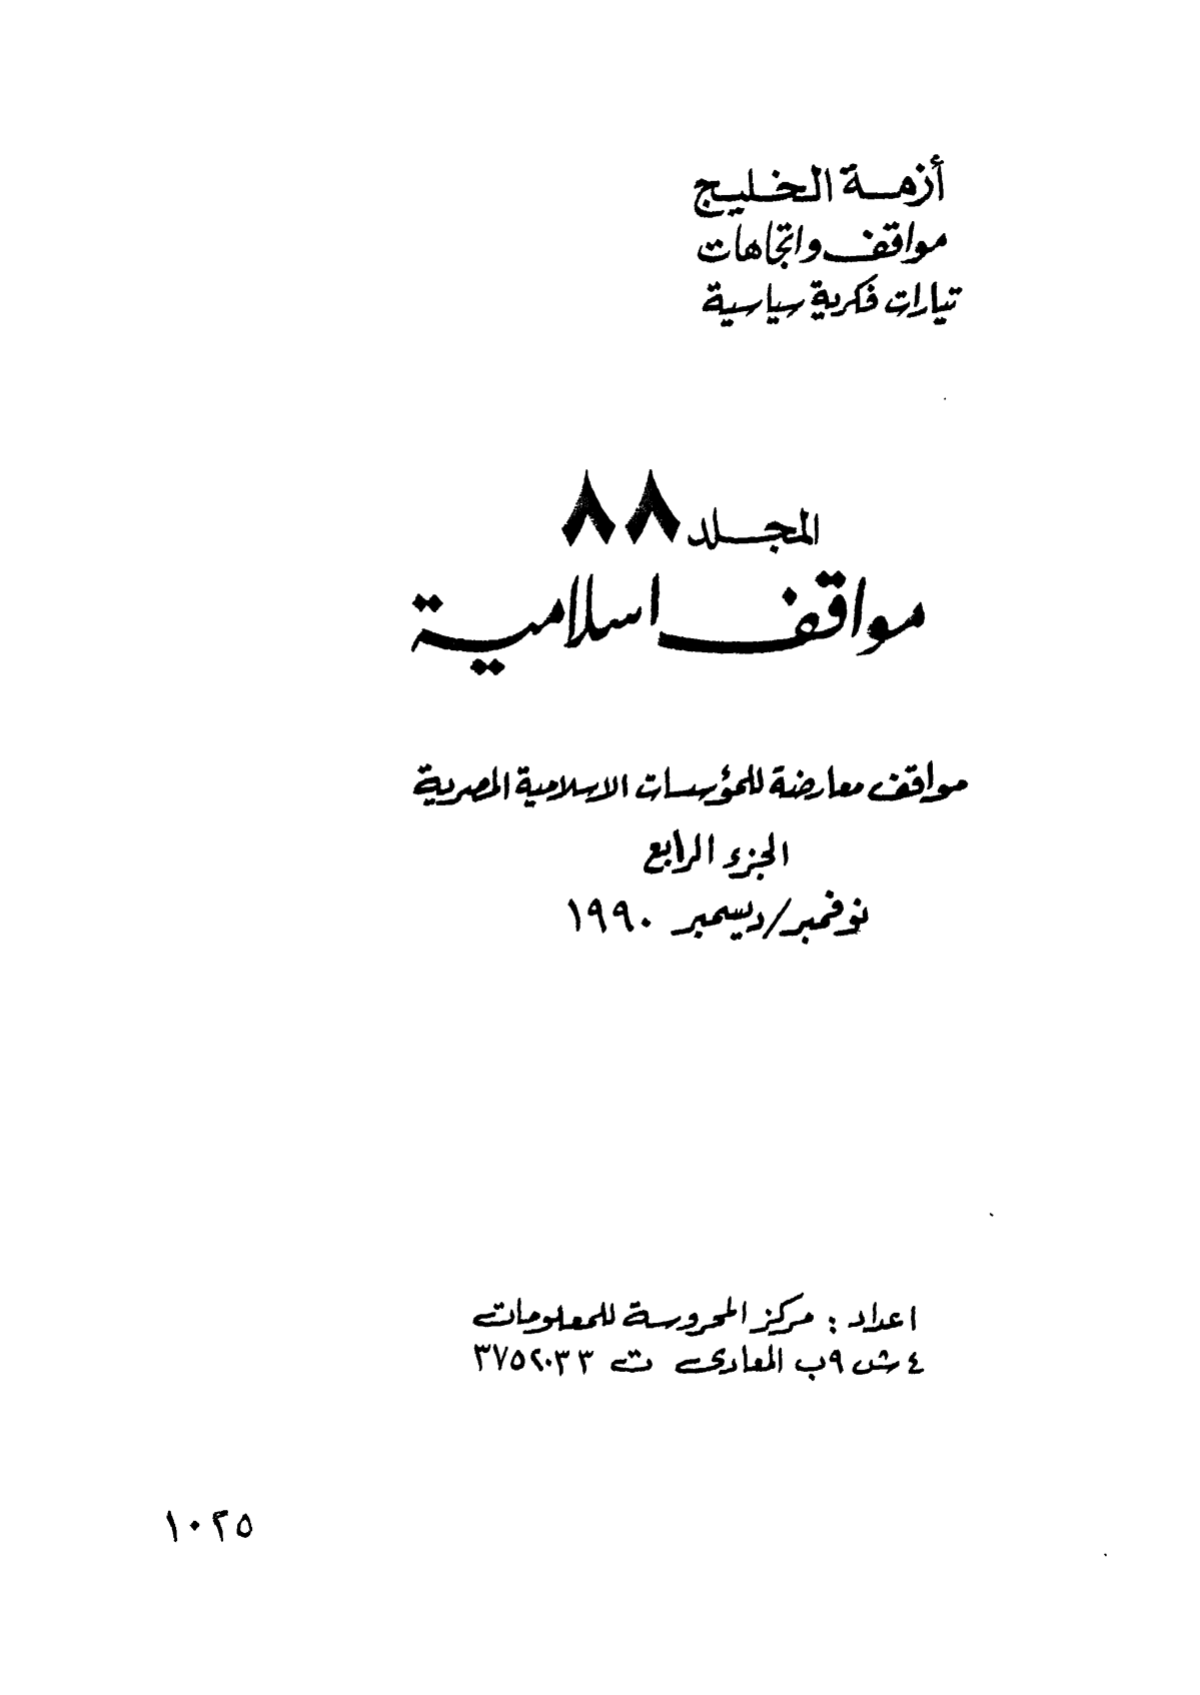 أزمة الخليج
مواقف واتجاهات
تيارات فكرية سياسية
المجلد ٨٨
مواقف اسلامية
مواقف معارضة للمؤسسات الاسلامية المصرية
الجزء الرابع
نوفمبر/ديسمبر ١٩٩٠
اعداد : مركز المحروسة للمعلومات
٤ ش ٩ب المعادى ت ٣٧٥٢٠٣٣
١٠٢٥